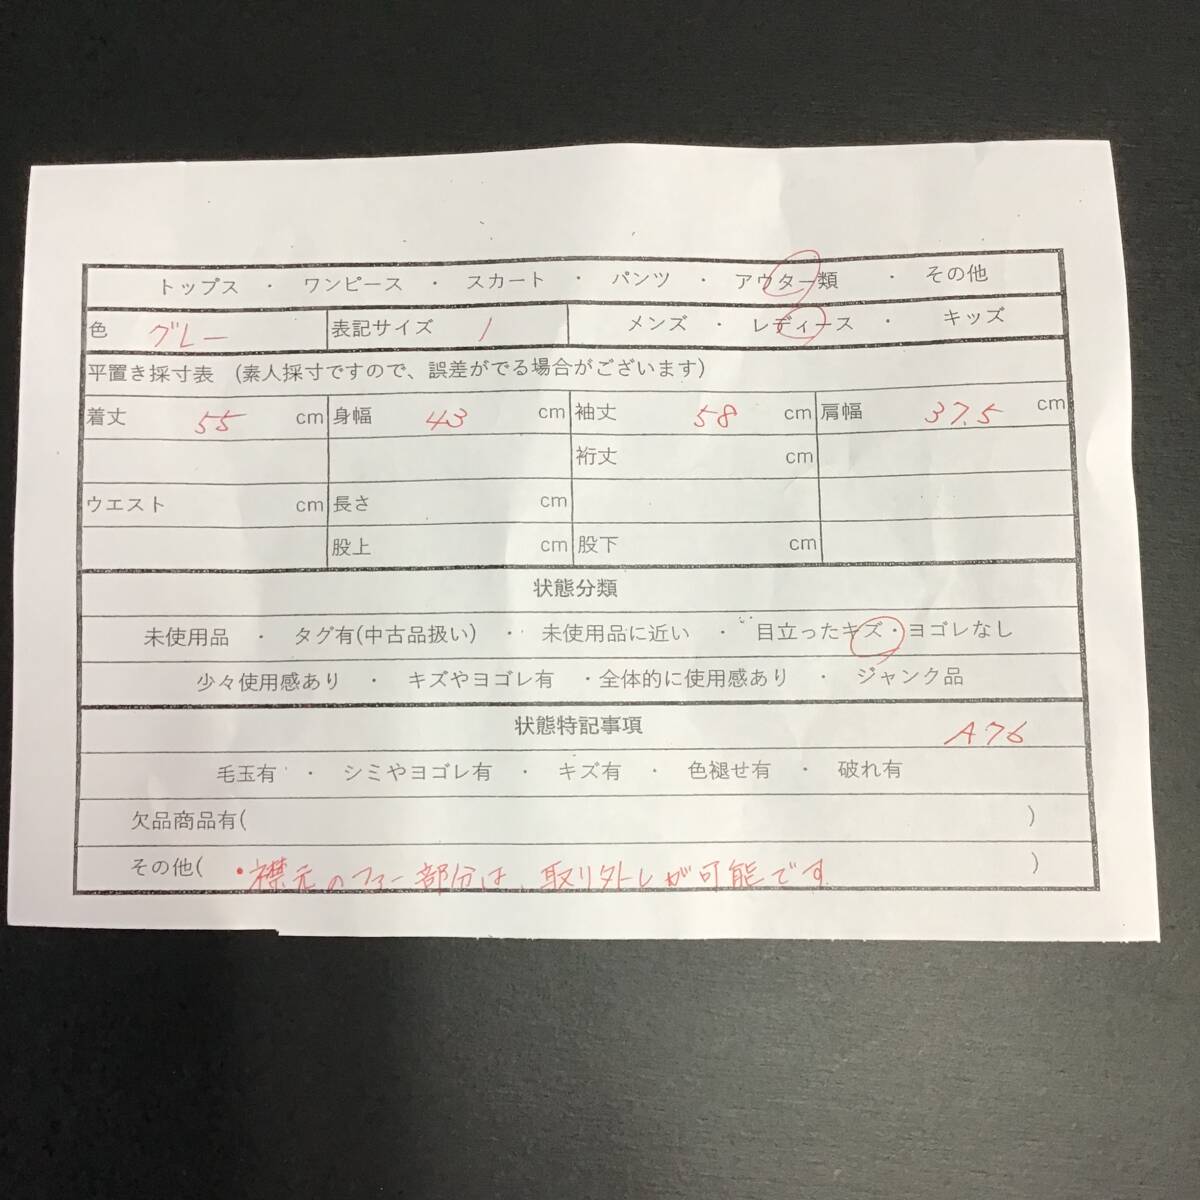 トップス ・ ワンピース ・ スカート ・ パンツ ・ アウター類 ・ その他
色 グレー 表記サイズ 1 メンズ ・ レディース ・ キッズ
平置き採寸表 (素人採寸ですので、誤差がでる場合がございます)
着丈 55 cm 身幅 43 cm 袖丈 58 cm 肩幅 37.5 cm
裄丈 cm
ウエスト cm 長さ cm
股上 cm 股下 cm
状態分類
未使用品 ・ タグ有(中古品扱い) ・ 未使用品に近い ・ 目立ったキズ・ヨゴレなし
少々使用感あり ・ キズやヨゴレ有 ・全体的に使用感あり ・ ジャンク品
状態特記事項 A76
毛玉有 ・ シミやヨゴレ有 ・ キズ有 ・ 色褪せ有 ・ 破れ有
欠品商品有( )
その他( ・襟元のファー部分は、取り外しが可能です )